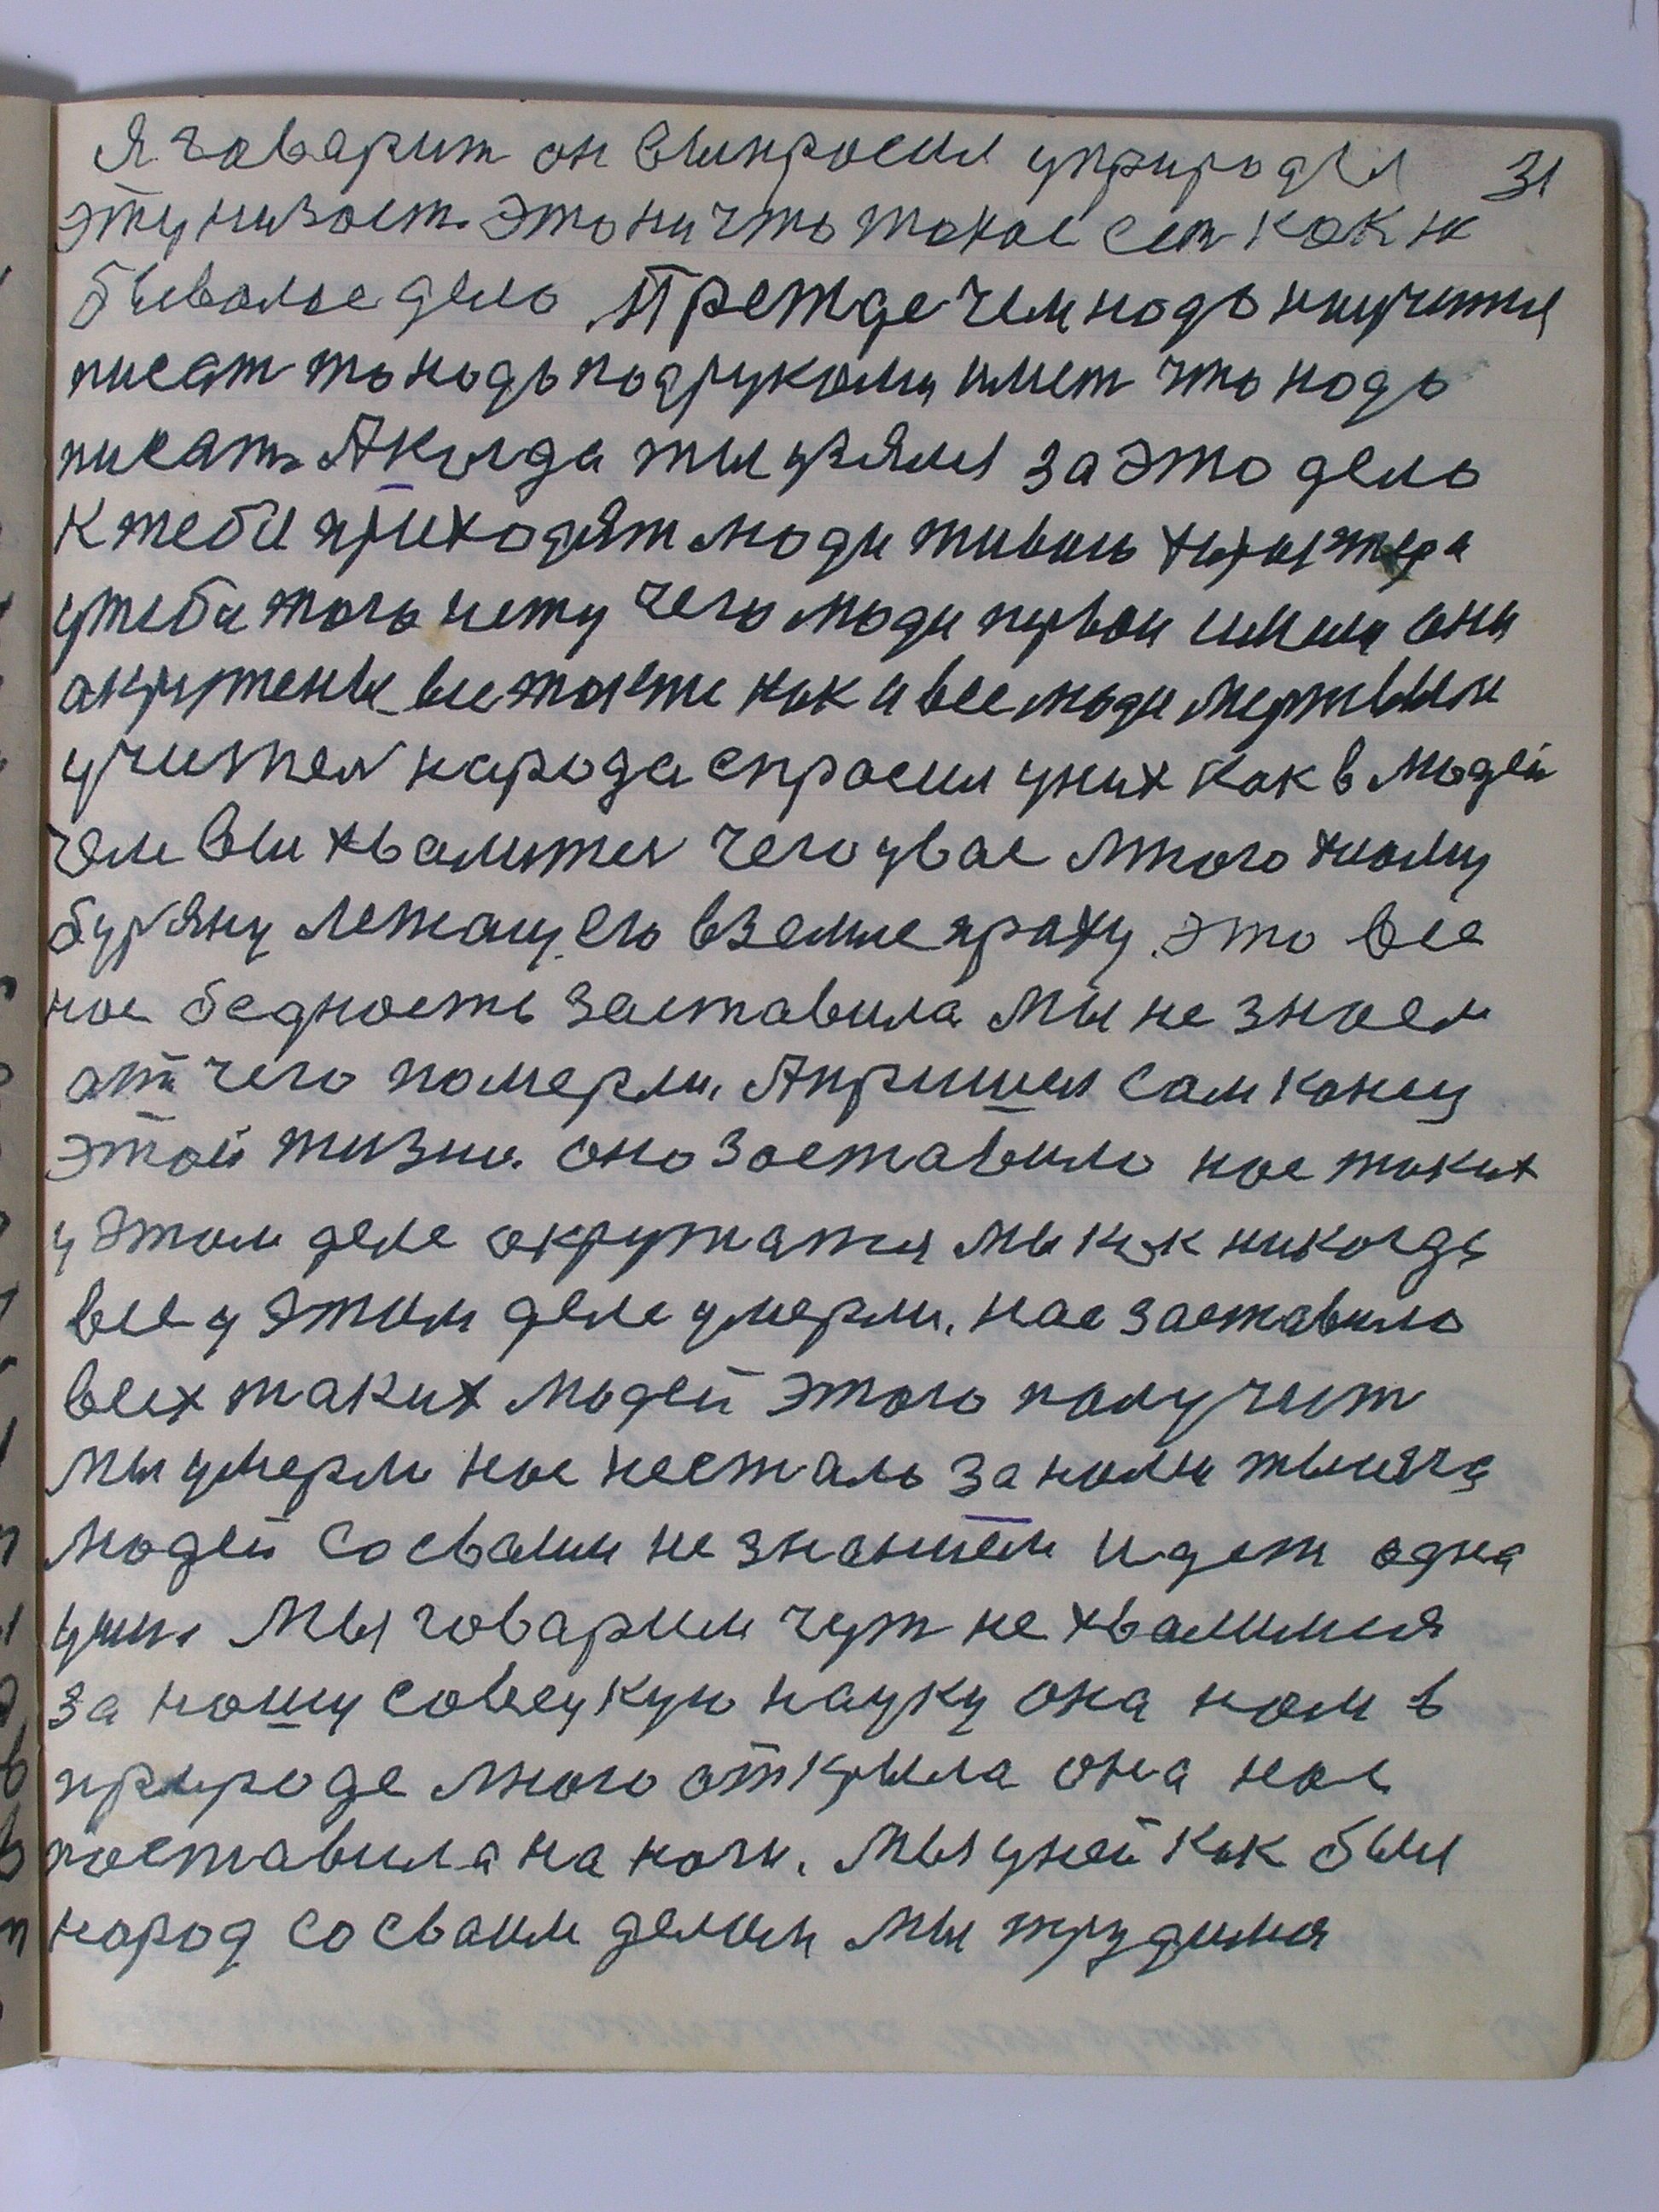 Я говарит он выпросил уприроды 31
эту низост. это ни что такое ест как не
бывалое дело Прежде чем надо научится
писат то надо под руками имет что надо
писать А когда ты узялся за это дело
к тебе приходят люди живые
у тебя того нету чего люди первои имели они
акружены все также как и все люди мертвыи
учител народа спросил у них как в людей
чем вы хвалитес чего у вас много
буряну лежащего в земле праху это все
нас бедность заставила мы не знаем
атчего померли. А пришел сам конец
этой жизни. оно заставило нас таких
у этом деле окружатся мы как никогда
все у этом деле умерли. нас заставило
всех таких людей этого получит
мы умерли нас не стало за нами тысяча
людей со сваим не знанием идет одна
Мы говарим чут не хвалимся
за нашу совецкую науку она нам в
природе много открыла она нас
поставила на ноги. Мы у ней как был
народ со сваим делам мы трудимся